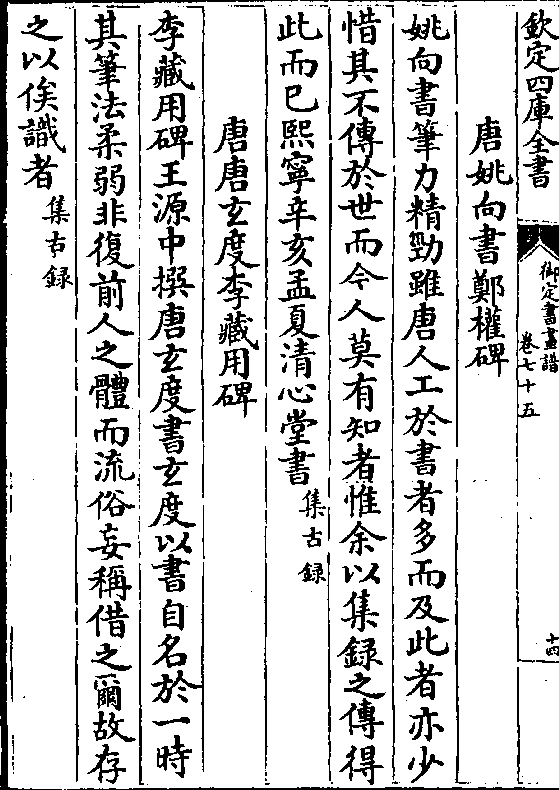 欽定四庫全書
御定書畫譜
卷七十五
十四
唐姚向書鄭權碑
姚向書筆力精勁雖唐人工於書者多而及此者亦少
惜其不傳於世而今人莫有知者惟余以集録之傳得
此而已熙寧辛亥孟夏清心堂書集古録
唐唐玄度李藏用碑
李藏用碑王源中撰唐玄度書玄度以書自名於一時
其筆法柔弱非復前人之體而流俗妄稱借之爾故存
之以俟識者集古録